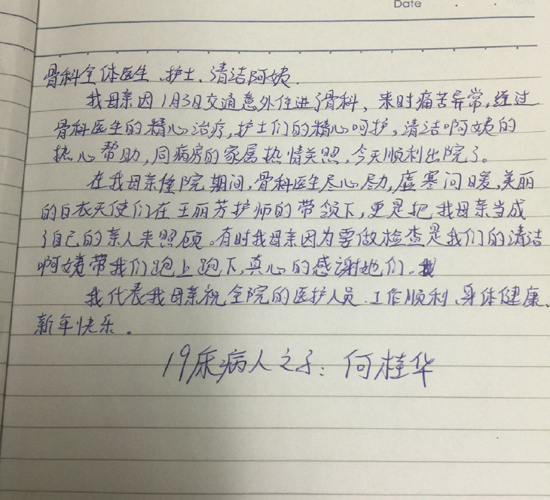 Date
骨科全体医生、护士、清洁阿姨.
我母亲因1月3日交通意外住进了骨科、来时痛苦异常,经过
骨科医生的精心治疗,护士们的精心呵护,清洁啊姨的
热心帮助,同病房的家属热情关照,今天顺利出院了。
在我母亲住院期间,骨科医生尽心尽力,虚寒问暖,美丽
的白衣天使们在王丽芳护师的带领下,更是把我母亲当成
了自己的亲人来照顾。有时我母亲因为要做检查是我们的清洁
啊姨带我们跑上跑下,真心的感谢她们.
我代表我母亲祝全院的医护人员.工作顺利、身体健康、
新年快乐.
19床病人之子:何桂华